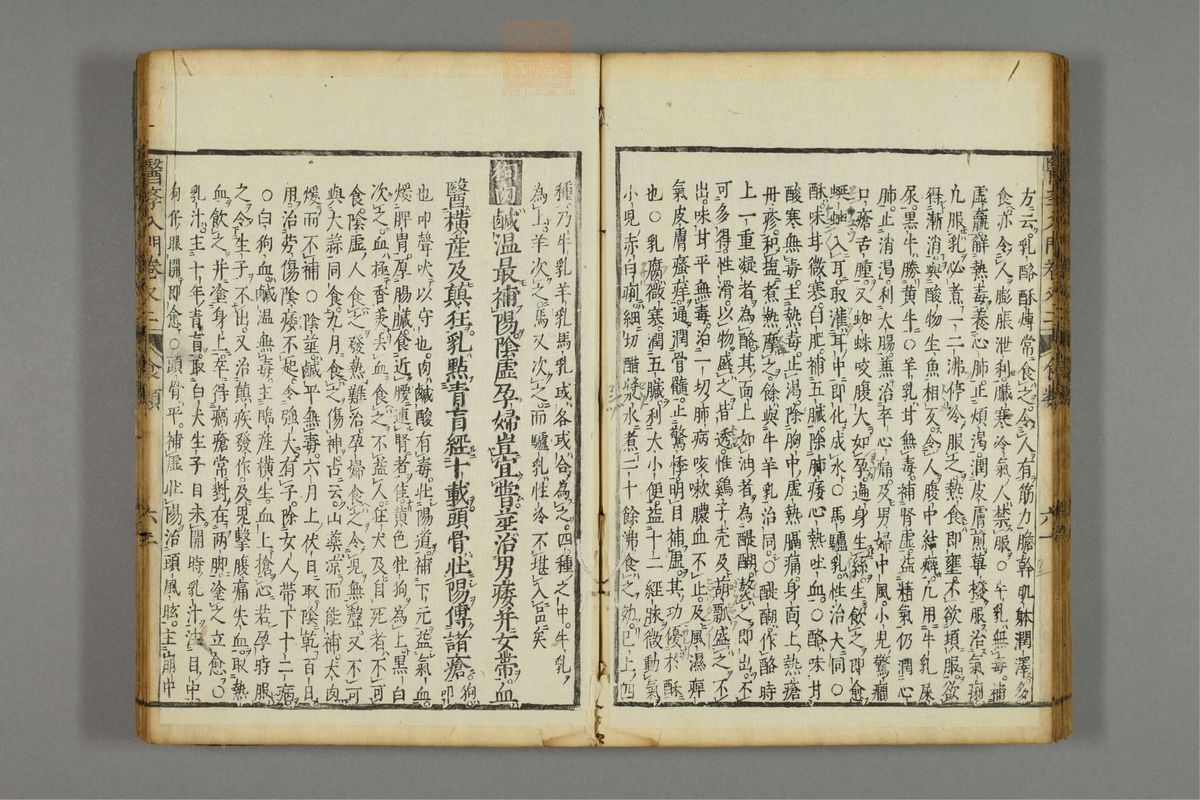 方云乳酪酥䏑常食之令人有筋力膽幹肌躰潤澤多
食亦令人膨脹泄利臟寒冷氣人禁服○牛乳無毒補
虛羸解熱毒養心肺止煩渴潤皮膚煎蓽撥服治氣痢
九服乳必煮一二沸停冷服之熱食即壅不欲頓服欲
得漸消與酸物生魚相反令人腹中結癖凡用牛乳屎
尿黑牛勝黃牛○羊乳甘無毒補腎虛益精氣仍潤心
肺止消渴利大腸兼治卒心痛及男婦中風小兒驚癇
口瘡舌腫又蜘蛛咬腹大如孕遍身生絲生飲之即愈
蚰蜒入耳取灌耳中即化成水○馬驢乳性治大同○
酥味甘微寒白肥補五臟除肺痿心熱吐血○酪味甘
酸寒無毒主熱毒止渴除胸中虛熱膈痛身面上熱瘡
丹疹和塩煮熱摩之餘與牛羊乳治同○醍醐作酪時
上一重凝者為酪其面上如油者為醍醐熬之即出不
可多得性滑以物盛之皆透惟鷄子壳及葫瓢盛之不
出味甘平無毒治一切肺病咳嗽膿血不止及風濕痺
氣皮膚瘙痒通潤骨髓止驚悸明目補虛其功優於酥
也○乳腐微寒潤五臟利大小便益十二經脉微動氣
小兒赤白痢細切醋漿水煮二十餘沸食之効巳上四
種乃牛乳羊乳馬乳或各或合為之四種之中牛乳
為上羊次之馬又次之而驢乳性冷不堪入品矣
狗肉 鹹温最補陽陰虛孕婦豈宜嘗莖治男痿并女帶血
醫橫産及顛狂乳點青盲經十載頭骨壯陽傅諸瘡 狗叩
也叩聲吠以守也肉鹹酸有毒壯陽道補下元益氣血
煖脾胃厚腸臟食近腰連腎者佳黃色牡狗為上黑白
次之血極香美去血食之不益人在犬及自死者不可
食陰虛人食之發熱難治孕婦食之令兒無聲又不可
與大蒜同食九月食之傷神占云山藥凉而能補犬肉
煖而不補○陰莖鹹平無毒六月上伏日取陰乾百日
用治勞傷陰痿不起令強大有子除女人帶下十二病
○白狗血鹹温無毒主臨産橫生血上搶心若孕時服
之令生子不出又治顛疾發作及鬼擊腹痛失血取熱
血飲之并塗身上卒得瘑瘡常對在兩脚塗之立愈○
乳汁主十年青盲取白犬生子目未開時乳汁注目中
狗仔眼開即愈○頭骨平補虛壯陽治頭風眩主崩中
醫斈入門卷之二 食類 六二